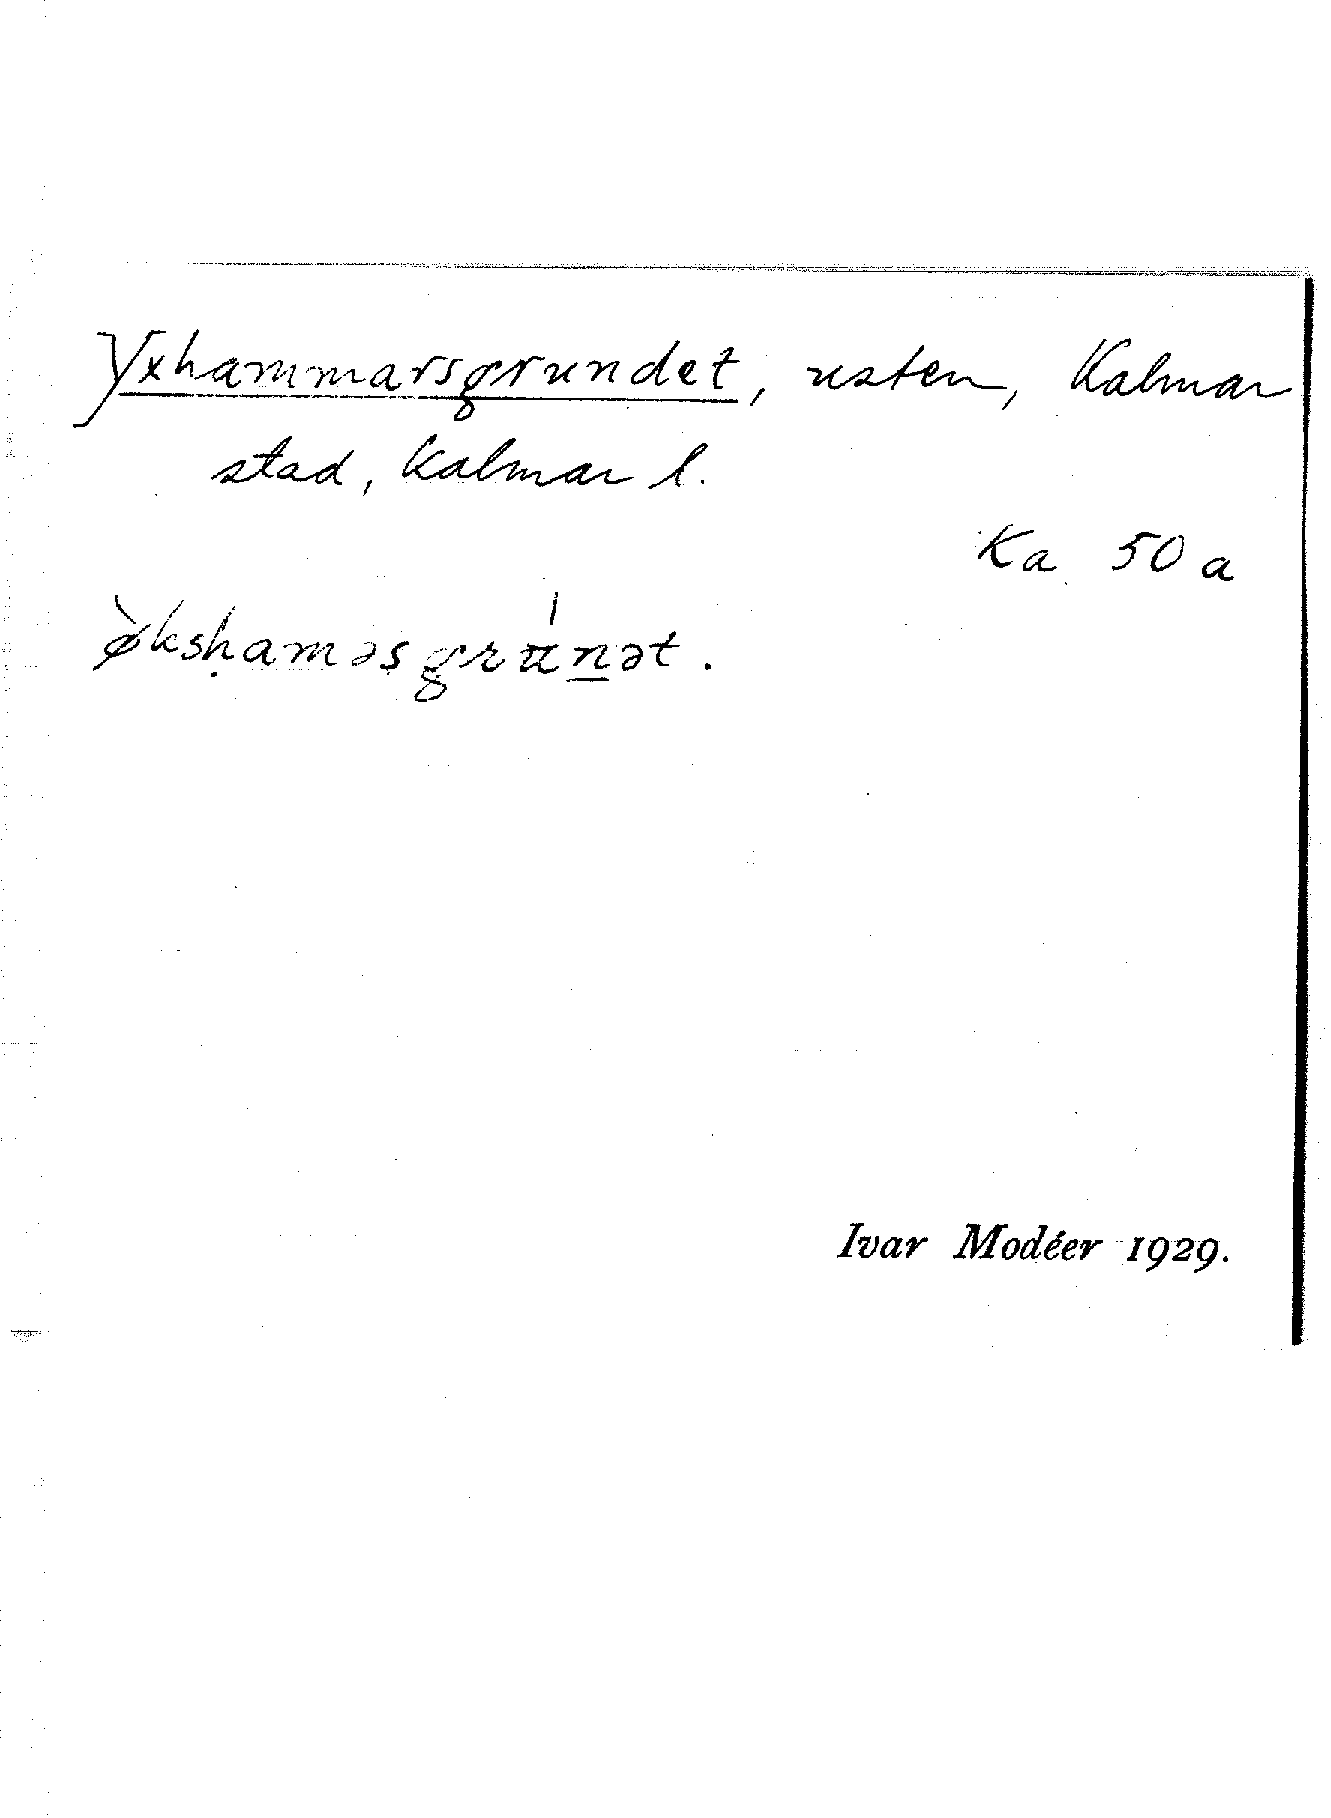 Yxhammarsgrundet, usten, Kalmar
stad, Kalmar l.
Ka 50 a
ø̀ksḥaməsgru̇́n̲ət.
Ivar Modéer 1929.